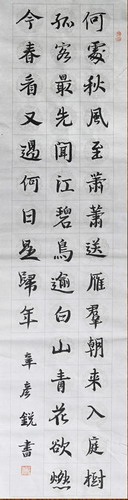 何處秋風至蕭蕭送雁羣朝来入庭樹
孤客最先聞江碧鳥逾白山青花欲燃
今春看又過何日是歸年 辜彦銳書